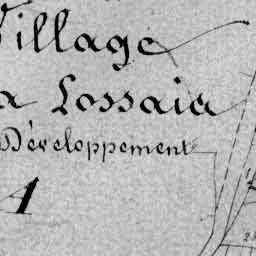 Village
a Lossaia
Développement
A